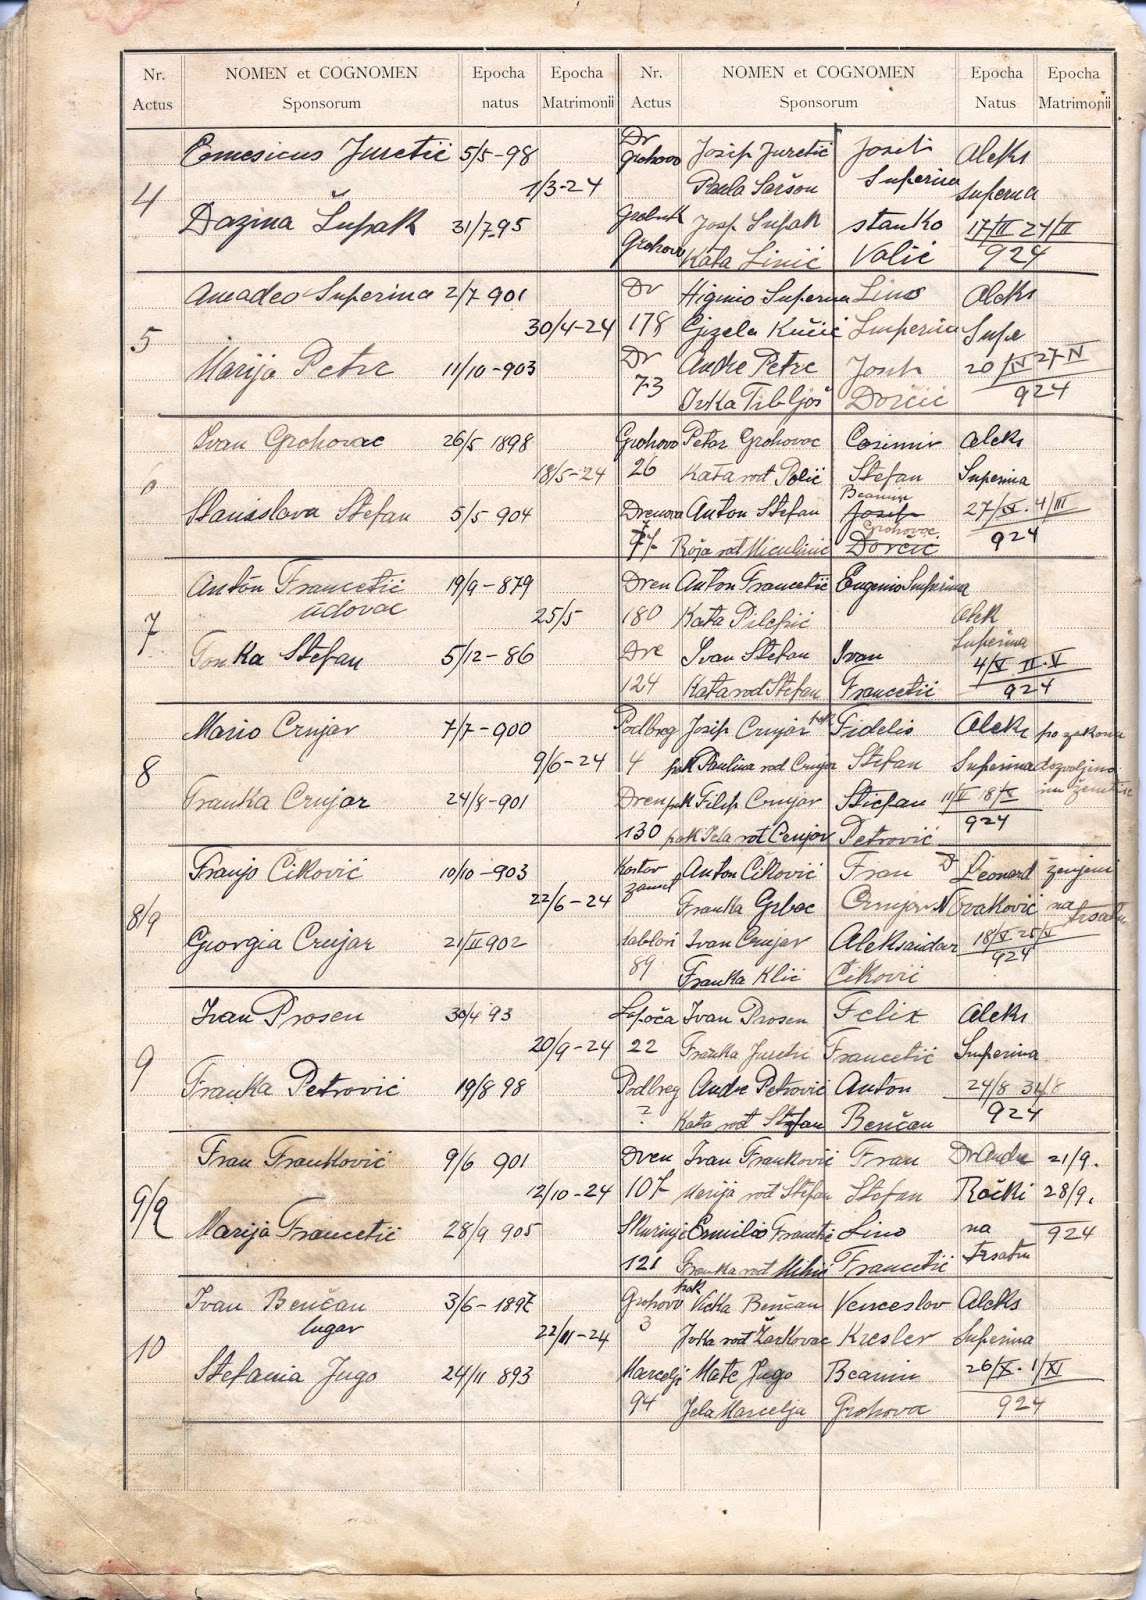 Nr. Actus NOMEN et COGNOMEN Sponsorum Epocha natus Epocha Matrimonii Nr. Actus NOMEN et COGNOMEN Sponsorum Epocha Natus Epocha Matrimonii
Juretić 5/5-98 Dr Grohovo Josip Juretić Josip Aleks
4 1/3-24 Paula Saršon Superina Superina
Dazina Šupak 31/7 95 Grobnik Josip Šupak Stanko 17/II 24/II
Grohovo Kata Linić Valić 924
Amadeo Superina 2/7 901 Dr Higinio Superina Lino Aleks
5 30/4-24 178 Gizela Kučić Superina Supe
Marija Petrc 11/10-903 Dr Andre Petrc Josip 20/IV 27-IV
73 Ivka Tibljaš Dorčić 924
Ivan Grohovac 26/5 1898 Grohovo Petar Grohovac Casimir Aleks
6 18/5-24 26 Kata rođ Polić Stefan Superina
Beamin
Stanislava Stefan 5/5 904 Drenova Anton Stefan Josip 27/IV. 4/III
Grohovac
77 Roža rođ Miculinić Dorčić 924
Anton Francetić 19/9-879 Dren Anton Francetić Eugenio Superina
udovac
7 25/5 180 Kata Pilepić Alek
Superina
Tonka Stefan 5/12-86 Dre Ivan Stefan Ivan 4/V II.V
124 Kata rod Stefan Francetić 924
Mario Crnjar 7/7-900 Podbreg Josip Crnjar pok Fidelis Aleks po zakonu
8 9/6-24 4 pok Paulina rod Crnjar Stefan Superina dozvoljeno
Franka Crnjar 24/8-901 Dren pok Filip Crnjar Stiepan 11/V 18/V im ženitbe
130 pok Pela rođ Crnjar Petrović 924
Franjo Ciković 10/10-903 Kostov Anton Ciković Fran D Leonard ženjeni
8/9 22/6-24 zamet Franka Grbac Crnjar Novaković na Trsatu
Georgia Crnjar 21/II 902 Lablovi Ivan Crnjar Aleksandar 18/V 25/V
89 Franka Klić Ciković 924
Ivan Prosen 30/4 93 Lopača Ivan Prosen Felix Aleks
9 20/9-24 22 Franka Juretić Francetić Superina
Franka Petrović 19/8 98 Podbreg Andre Petrović Anton 24/8 31/8
? Kata rođ Stefan Benčan 924
Fran Franković 9/6 901 Dren Ivan Franković Fran Dr Andre 21/9.
9/9 12/10-24 107 Marija rođ Stefan Stefan Rački 28/9.
Marija Francetić 28/9 905 Skurinje Emilio Francetić Lino na 924
121 Franka rođ Mihić Francetić Trsatu
pok
Ivan Benčan 3/6-1897 Grohovo Vicka Benčan Venceslav Aleks
lugar
10 22/11-24 3 Ivka rođ Žarkovac Kresler Superina
Stefania Jugo 24/11 893 Marcelji Mate Jugo Beamin 26/X. 1/XI
94 Jela Marcelja Grohovac 924